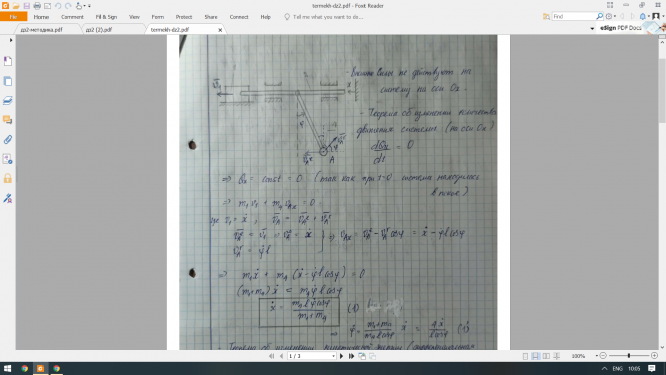 termekh-dz2.pdf - Foxit Reader
File
Home
Comment
Fill & Sign
View
Form
Protect
Share
Connect
Help
Tell me what you want to do...
Find
дз2-методика.pdf
дз2 (2).pdf
termekh-dz2.pdf
eSign PDF Docs
- Внешние силы не действуют на
систему на оси Ox.
- Теорема об изменении количества
движения системы (на оси Ox)
dQx/dt = 0
A
⇒ Qx = const = 0 (так как при t=0 система находилась
в покое)
⇒ m₁v₁ + m₄ v_Ax = 0
где v₁ = ẋ,
= ẋ - φ̇l cosφ
⇒ m₁ẋ + m₄ (ẋ - φ̇l cosφ) = 0
(m₁+m₄) ẋ = m₄ φ̇l cosφ
ẋ = m₄ l φ̇ cosφ / m₁+m₄ (1)
- Теорема об изменении кинетической
1 / 3
100%
ENG
10:05